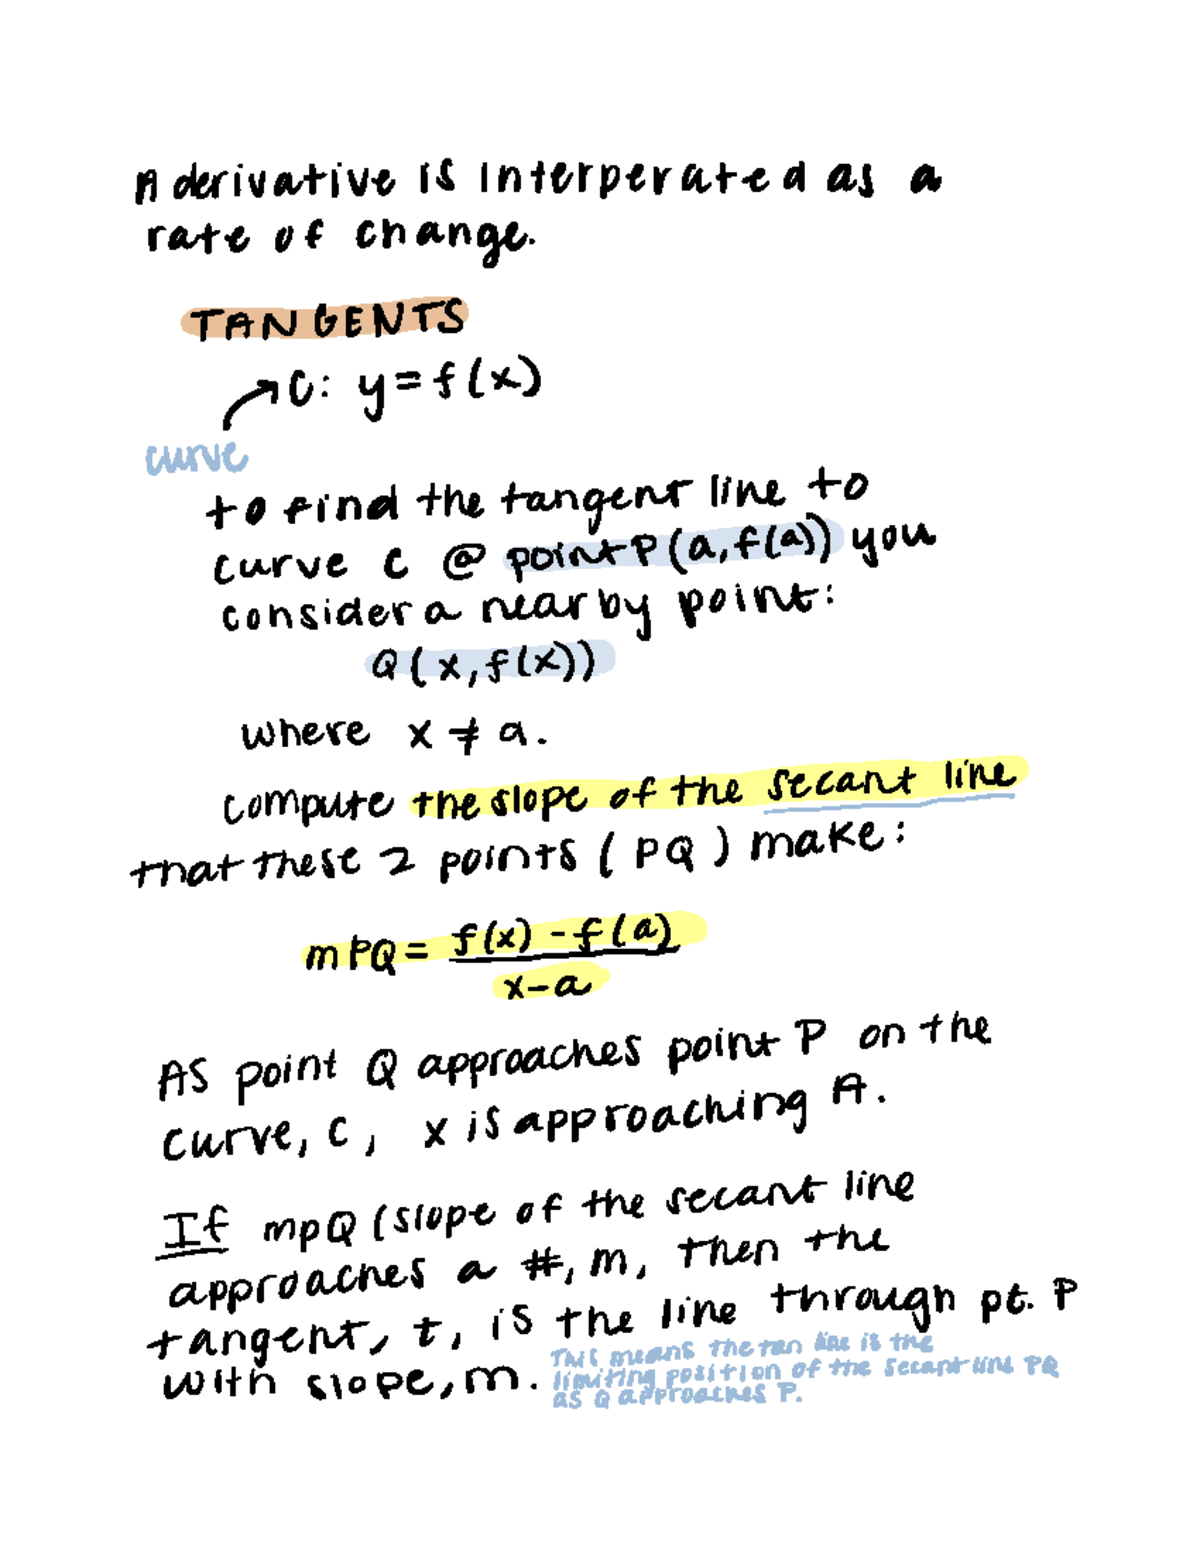 A derivative is interperated as a
rate of change.
TANGENTS
C: y = f(x)
curve
to find the tangent line to
curve C @ point P(a, f(a)) you
consider a nearby point:
Q(x, f(x))
where x ≠ a.
compute the slope of the secant line
that these 2 points (PQ) make:
mPQ = f(x) - f(a)
x-a
As point Q approaches point P on the
curve, C, x is approaching A.
If mpQ (slope of the secant line
approaches a #, m, then the
tangent, t, is the line through pt. P
with slope, m.
This means the tan line is the
limiting position of the secant line PQ
as Q approaches P.